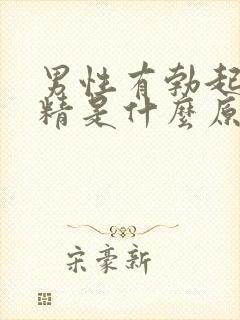 男性有勃起
精是什麼原
宋豪新